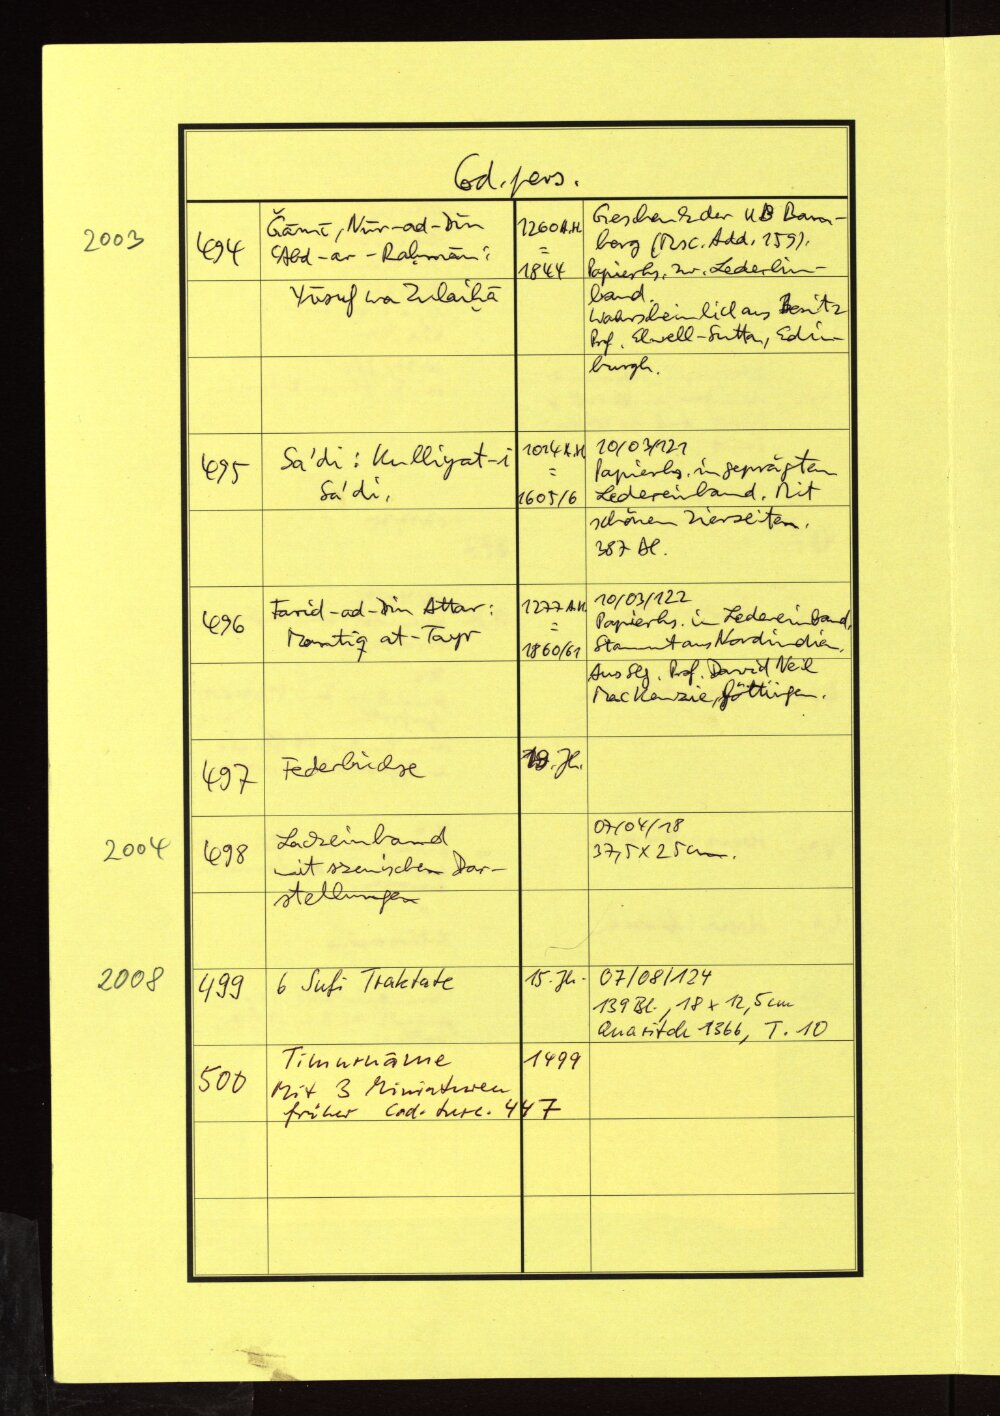 Cod. pers.
2003
494
Ǧāmī, Nūr-ad-Dīn
ʿAbd-ar-Raḥmān:
Yūsuf wa Zulaiḫā
1260 A.H.
=
1844
Geschenk der UB Bam-
berg (Msc. Add. 159).
Papierhs. in Lederein-
band.
Wahrscheinlich aus Besitz
Prof. Elwell-Sutton, Edin-
burgh.
495
Sa'di: Kulliyat-i
Sa'di.
1014 A.H.
=
1605/6
10/03/121
Papierhs. in geprägtem
Ledereinband. Mit
schönen Zierseiten.
387 Bl.
496
Farid-ad-Din Attar:
Mantiq at-Tayr
1277 A.H.
=
1860/61
10/03/122
Papierhs. in Ledereinband,
Stammt aus Nordindien.
Aus Slg. Prof. David Neil
MacKenzie, Göttingen.
497
Federbüchse
19. Jh.
2004
498
Lackeinband
mit szenischen Dar-
stellungen
07/04/18
37,5 x 25 cm.
2008
499
6 Sufi Traktate
15. Jh.
07/08/124
139 Bl., 18 x 12,5 cm
Quaritch 1366, T. 10
500
Timurnāme
Mit 3 Miniaturen
früher Cod. turc. 447
1499